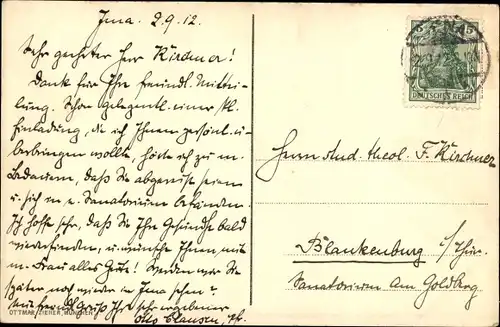 Jena, 2.9.12.
Sehr geehrter Herr Kirchner!
Dank für Ihre freundl. Mittei-
lung. Schon gelegentl. einer kl.
Einladung, die ich Ihnen persönl. ü-
berbringen wollte, hörte ich zu m.
Bedauern, daß Sie abgereist seien
u. sich in e. Sanatorium befänden.
Ich hoffe sehr, daß Sie Ihre Gesundht bald
wiederfinden, u. wünsche Ihnen, mit
m. Frau alles Gute! Werden wir Sie
später noch wieder in Jena sehen?
Ihr sehr ergebener
Otto Clausen,
OTTMAR ZIEHER, MÜNCHEN
JENA
DEUTSCHES REICH
Herrn stud. theol. F. Kirchner
Blankenburg i/Thür.
Sanatorium Am Goldberg